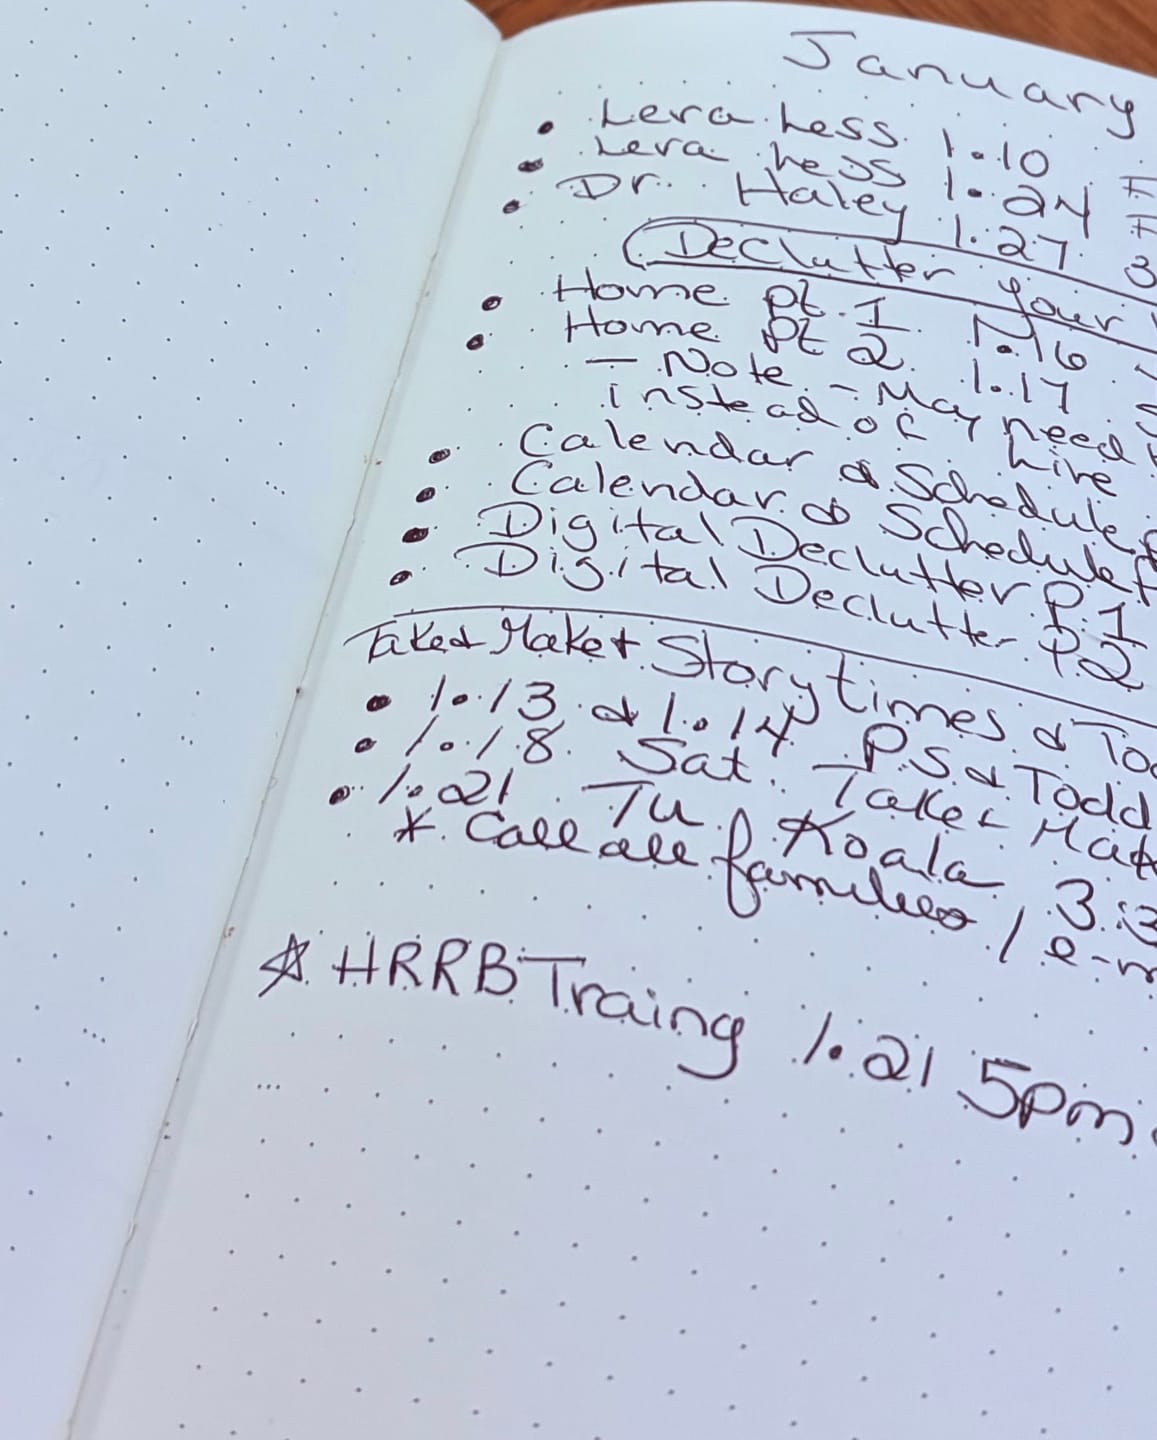 January
• Lera Hess 1.10 F
• Lera Hess 1.24 F
• Dr. Haley 1.27 3
Declutter Your
• Home pt. 1 1.16
• Home Pt 2 1.17
– Note – May need
instead of hire
• Calendar & Schedule
• Calendar & Schedule
• Digital Declutter P. 1
• Digital Declutter P2
Take & Make & Storytimes & Tod
• 1.13 & 1.14 P.S. & Todd
• 1.18 Sat. Take & Mak
• 1.21 Tu Koala 3:3
* Call all families / e-m
☆ HRRB Traing 1.21 5pm